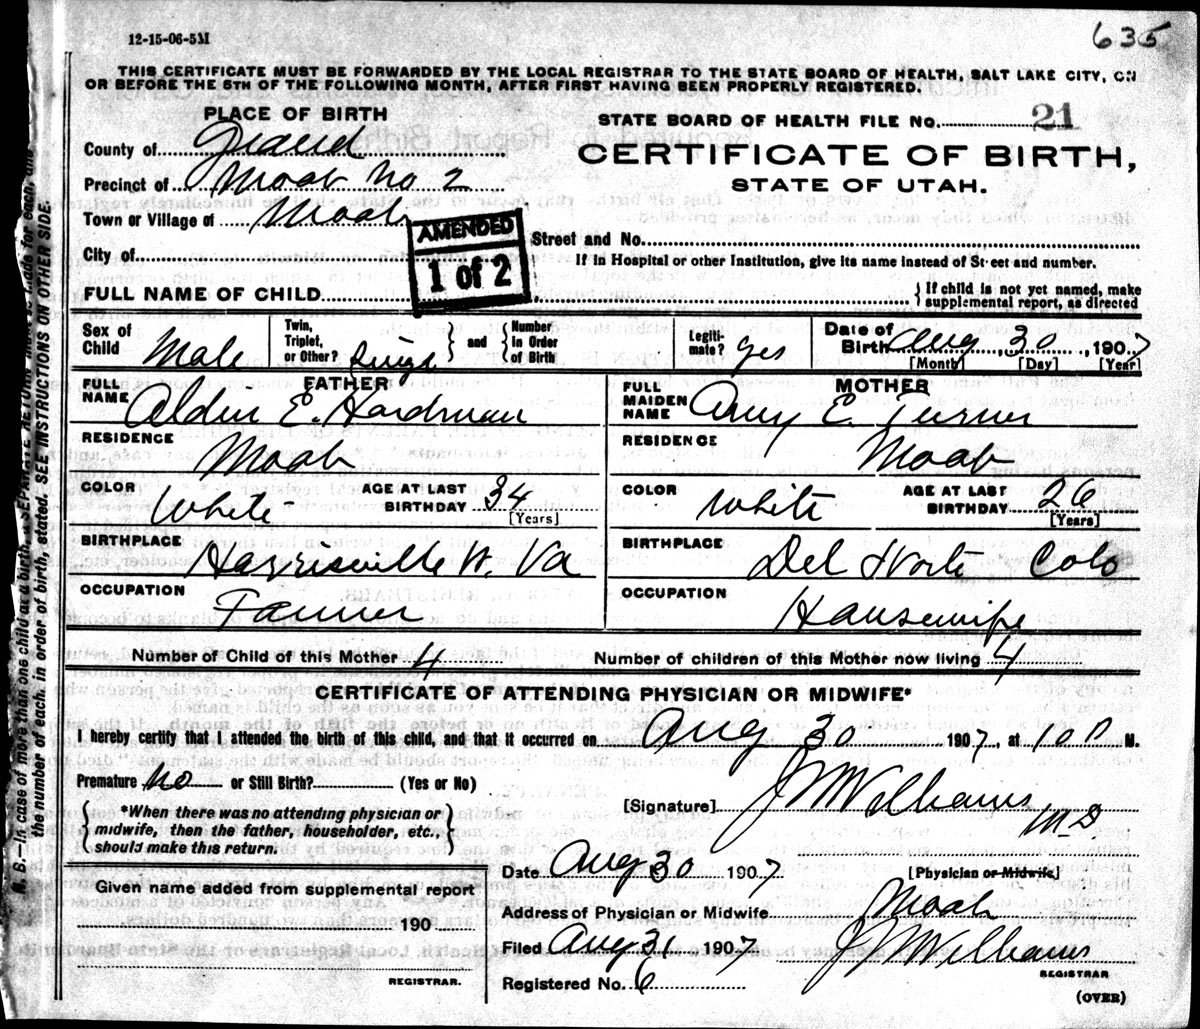 12-15-06-5M
635
THIS CERTIFICATE MUST BE FORWARDED BY THE LOCAL REGISTRAR TO THE STATE BOARD OF HEALTH, SALT LAKE CITY, ON
OR BEFORE THE 5TH OF THE FOLLOWING MONTH, AFTER FIRST HAVING BEEN PROPERLY REGISTERED.
PLACE OF BIRTH
County of Grand
Precinct of Moab No 2
Town or Village of Moab
City of
STATE BOARD OF HEALTH FILE NO. 21
CERTIFICATE OF BIRTH,
STATE OF UTAH.
AMENDED
1 of 2
Street and No.
If in Hospital or other Institution, give its name instead of Street and number.
FULL NAME OF CHILD
If child is not yet named, make
supplemental report, as directed
Sex of Child Male
Twin, Triplet, or Other? Single and Number in Order of Birth
Legitimate? yes
Date of Birth Aug 30, 1907
[Month] [Day] [Year]
FATHER
FULL NAME Alden E. Hardman
RESIDENCE Moab
COLOR White AGE AT LAST BIRTHDAY 34
[Years]
BIRTHPLACE Harrisville W. Va
OCCUPATION Farmer
MOTHER
FULL MAIDEN NAME Amy E. Turner
RESIDENCE Moab
COLOR White AGE AT LAST BIRTHDAY 26
[Years]
BIRTHPLACE Del Norte Colo
OCCUPATION Housewife
Number of Child of this Mother 4 Number of children of this Mother now living 4
CERTIFICATE OF ATTENDING PHYSICIAN OR MIDWIFE*
I hereby certify that I attended the birth of this child, and that it occurred on Aug 30 1907, at 10 P M.
Premature No or Still Birth? (Yes or No)
*When there was no attending physician or
midwife, then the father, householder, etc.,
should make this return.
[Signature] J W Williams MD
Date Aug 30 1907 [Physician or Midwife]
Address of Physician or Midwife Moab
Filed Aug 31 1907 J W Williams
REGISTRAR
Registered No. 6
(OVER)
Given name added from supplemental report
190
REGISTRAR.
N. B.—In case of more than one child at a birth, a SEPARATE RETURN must be made for each, and
the number of each, in order of birth, stated. SEE INSTRUCTIONS ON OTHER SIDE.